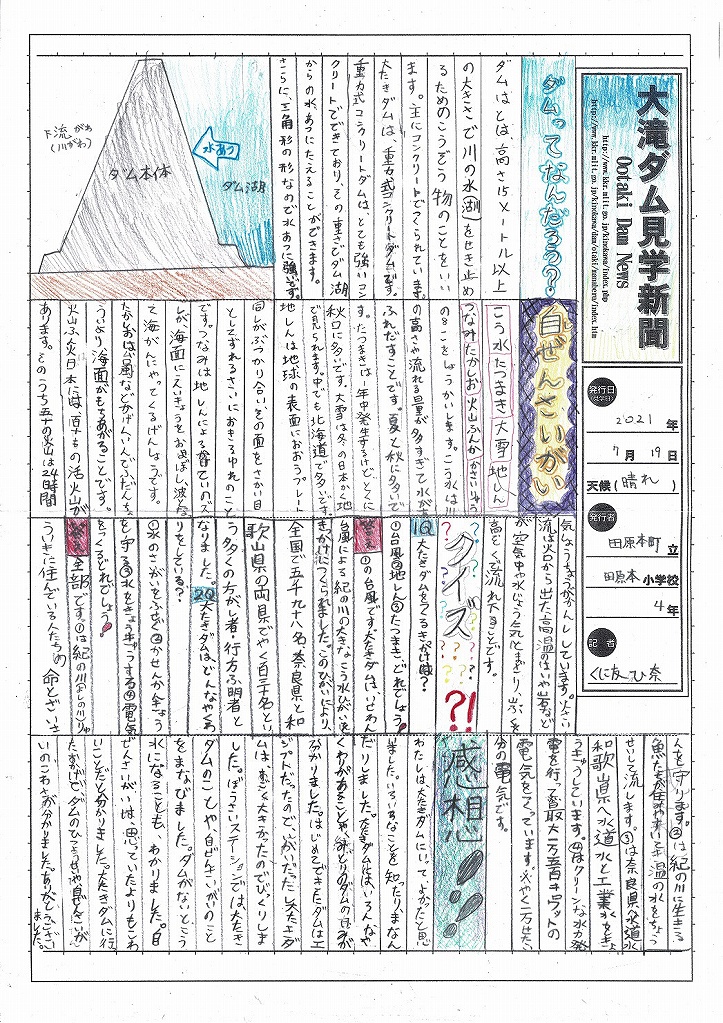 大滝ダム見学新聞
Ootaki Dam News
http://www.kkr.mlit.go.jp/kinokawa/index.php
発行日
(見学日)
2021年
7月19日
天候(晴れ)
発行者
田原本町立
田原本小学校
4年
記者
ダムってなんだろう?
ダムはとは、高さ15メートル以上
の大きさで川の水(湖)をせき止め
るためのこうぞう物のことをいい
ます。主にコンクリートでつくられています。
大たきダムは、重力式コンクリートダムです。
重力式コンクリートダムは、とても強いコン
クリートでできており、その重さでダム湖
からの水あつにたえることができます。
さらに、三角形の形なので水あつに強いです。
下流がわ
(川がわ)
ダム本体
水あつ
ダム湖
自ぜんさいがい
こう水 たつまき 大雪 地しん
つなみ たかしお 火山ふん火
のことをしょうかいします。こう水は川
の高さや流れる量が多すぎて水が
ふれだすことです。夏と秋に多いで
す。たつまきは一年中発生するけど、とくに
秋口に多いです。大雪は冬の日本かく地
で見られます。中でも北海道で多いです。
地しんは地球の表面におおうプレート
同しがぶつかり合い、その面をさかい目
としてずれるさいにおきるゆれのこと
です。つなみは地しんによる
が、海面にえいきょうをおよぼし、波
て海がんにやってくるげんしょうです。
たかしおは台風などが
うより海面がもちあがることです。
火山ふん火日本には、百十もの活火山が
あります。そのうち五十の火山は24時間
気しょうちょうがかんししています。火さい
流は火口から出た高温のはいや岩など
が空気や水じょう気とまざり、山ふくを
高そくで流れ下ることです。
クイズ?!
1Q 大たきダムをつくるきっかけは?
①台風②地しん③たつまき、どれでしょう。
答え ①の台風です。大たきダムは、いせわん
台風による紀の川の大きなこう水ひがいを
きっかけにつくられました。このひがいにより、
全国で五千九十八名、奈良県と和
歌山県の両県でやく百三十名とい
う多くの方がし者・行方ふ明者と
なりました。2Q大たきダムは、どんなやくわ
りをしている?
①水のさいがいをふせぐ②かせんかんきょう
を守る③水をきょうきゅうする④電気
をつくる、どれでしょう。
答え 全部です。①は紀の川(よしの川)りゅ
ういきに住んでいる人たちの命とざいさ
んを守ります。②は紀の川に生きる
せいして流します。③は奈良県へ水道水
和歌山県へ水道水と工業水をきょ
うきゅうしています。④はクリーンな水力発
電を行って最大一万五百キロワットの
電気をつくっています。
分の電気です。
感想
わたしは大たきダムにいって、よかったと思
いました。いろいろなことを知ったり、まなん
だりしました。大たきダムには、いろんなや
くわりがあることや、
分かりました。はじめてできたダムはエ
ジプトだったので、いがいだったし、大たきダ
ムは、すごく大きかったのでびっくりしま
した。ぼうさいステーションでは、大たき
ダムのことや、自ぜんさいがいのこと
をまなびました。ダムがないとこう
水になることも、わかりました。自
ぜんさいがいは、思っていたよりもこわ
いことだと分かりました。大たきダムに行
たおかげで、ダムのひつようせいや自ぜんさいが
いのこわさが分かりました。ありがとうござい
ました。